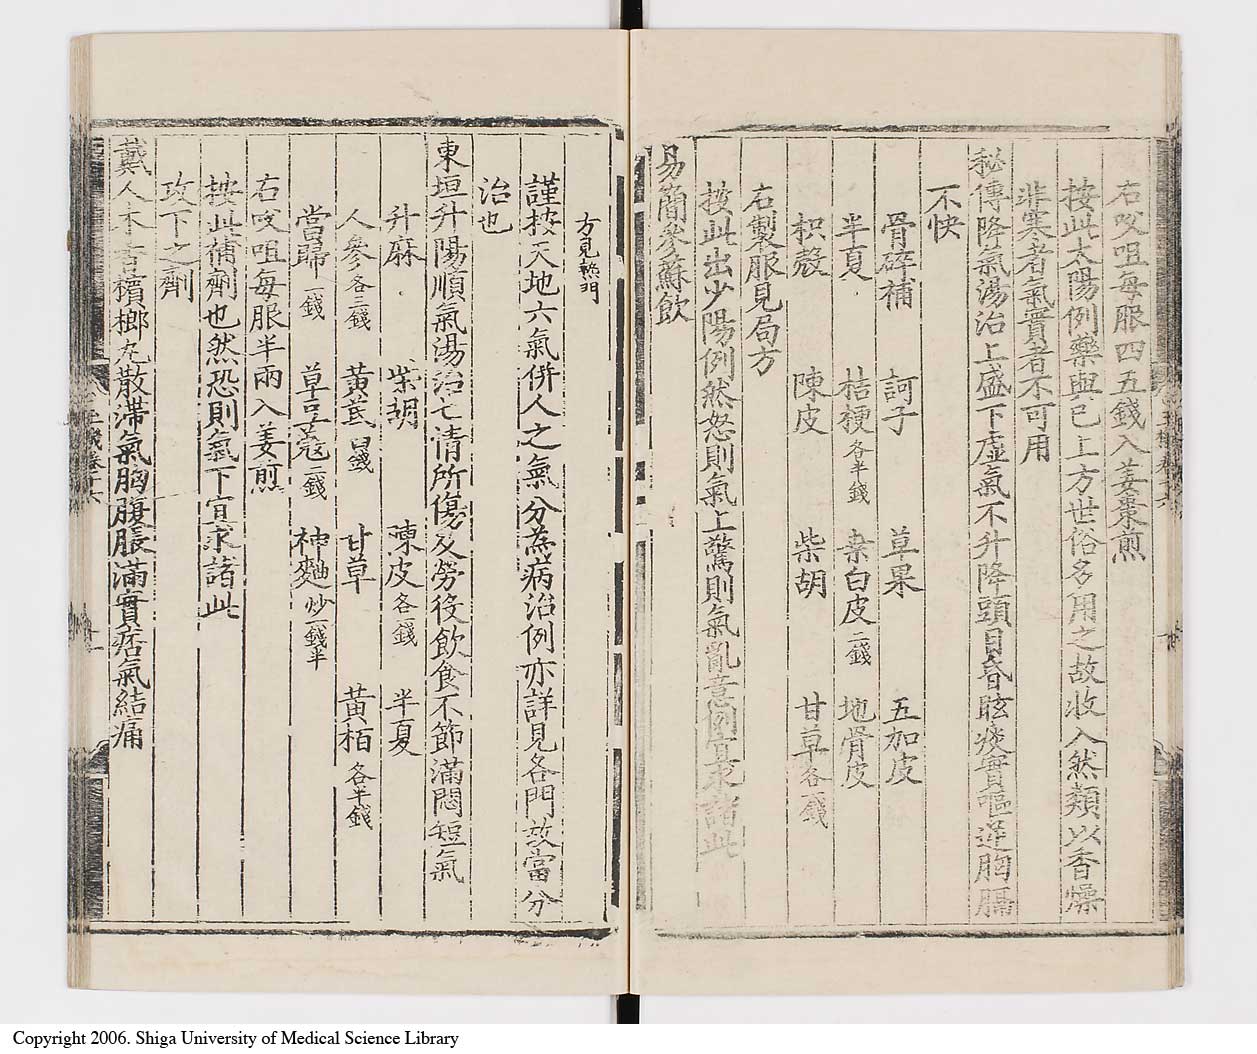 右㕮咀每服四五錢入姜棗煎
按此太陽例藥與已上方世俗多用之故收入然類以香燥
非寒者氣實者不可用
秘傳降氣湯治上盛下虛氣不升降頭目昏眩痰實嘔逆胸膈
不快
骨碎補 訶子 草果 五加皮
半夏 桔梗各半錢 桑白皮二錢 地骨皮
枳殼 陳皮 柴胡 甘草各一錢
右製服見局方
按此出少陽例然怒則氣上驚則氣亂意例宜求諸此
易簡參蘇飲
方見熱門
謹按天地六氣併人之氣分為病治例亦詳見各門故當分
治也
東垣升陽順氣湯治七情所傷及勞役飲食不節滿悶短氣
升麻 柴胡 陳皮各一錢 半夏
人參各三錢 黃芪四錢 甘草 黃栢各半錢
當歸一錢 草豆蔻二錢 神麯炒一錢半
右㕮咀每服半兩入姜煎
按此補劑也然恐則氣下宜求諸此
攻下之劑
戴人木香檳榔丸散滯氣胸腹脹滿實痞氣結痛
Copyright 2006. Shiga University of Medical Science Library